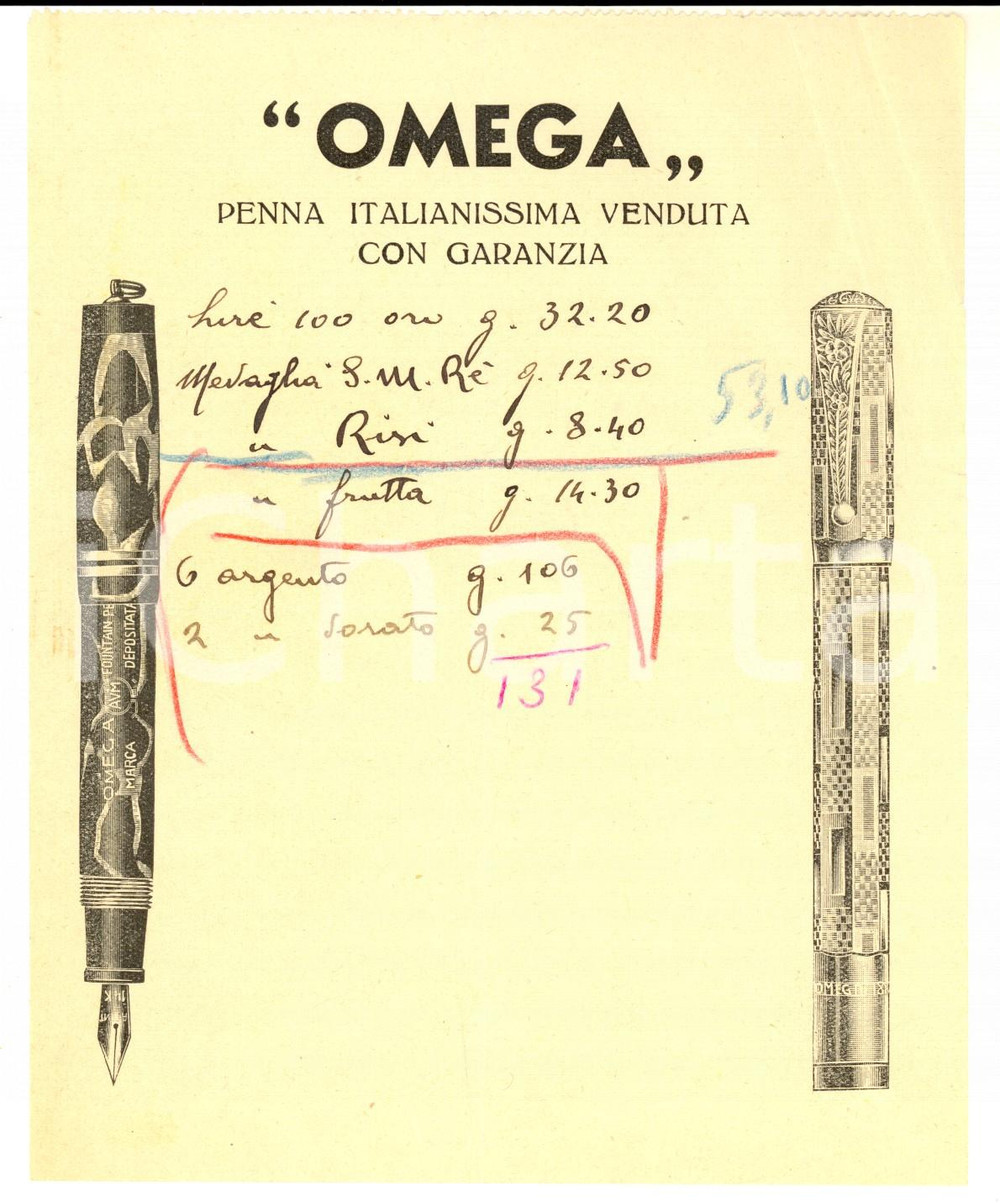 “OMEGA„
PENNA ITALIANISSIMA VENDUTA
CON GARANZIA
Lire 100 oro g. 32.20
Medaglia S. M. Re g. 12.50
" Risi g. 8.40
53,10
" frutta g. 14.30
6 argento g. 106
2 " dorato g. 25
131
OMEGA AVM FOUNTAIN PE
MARCA DEPOSITATA
14 K
OMEGA 18
Charta